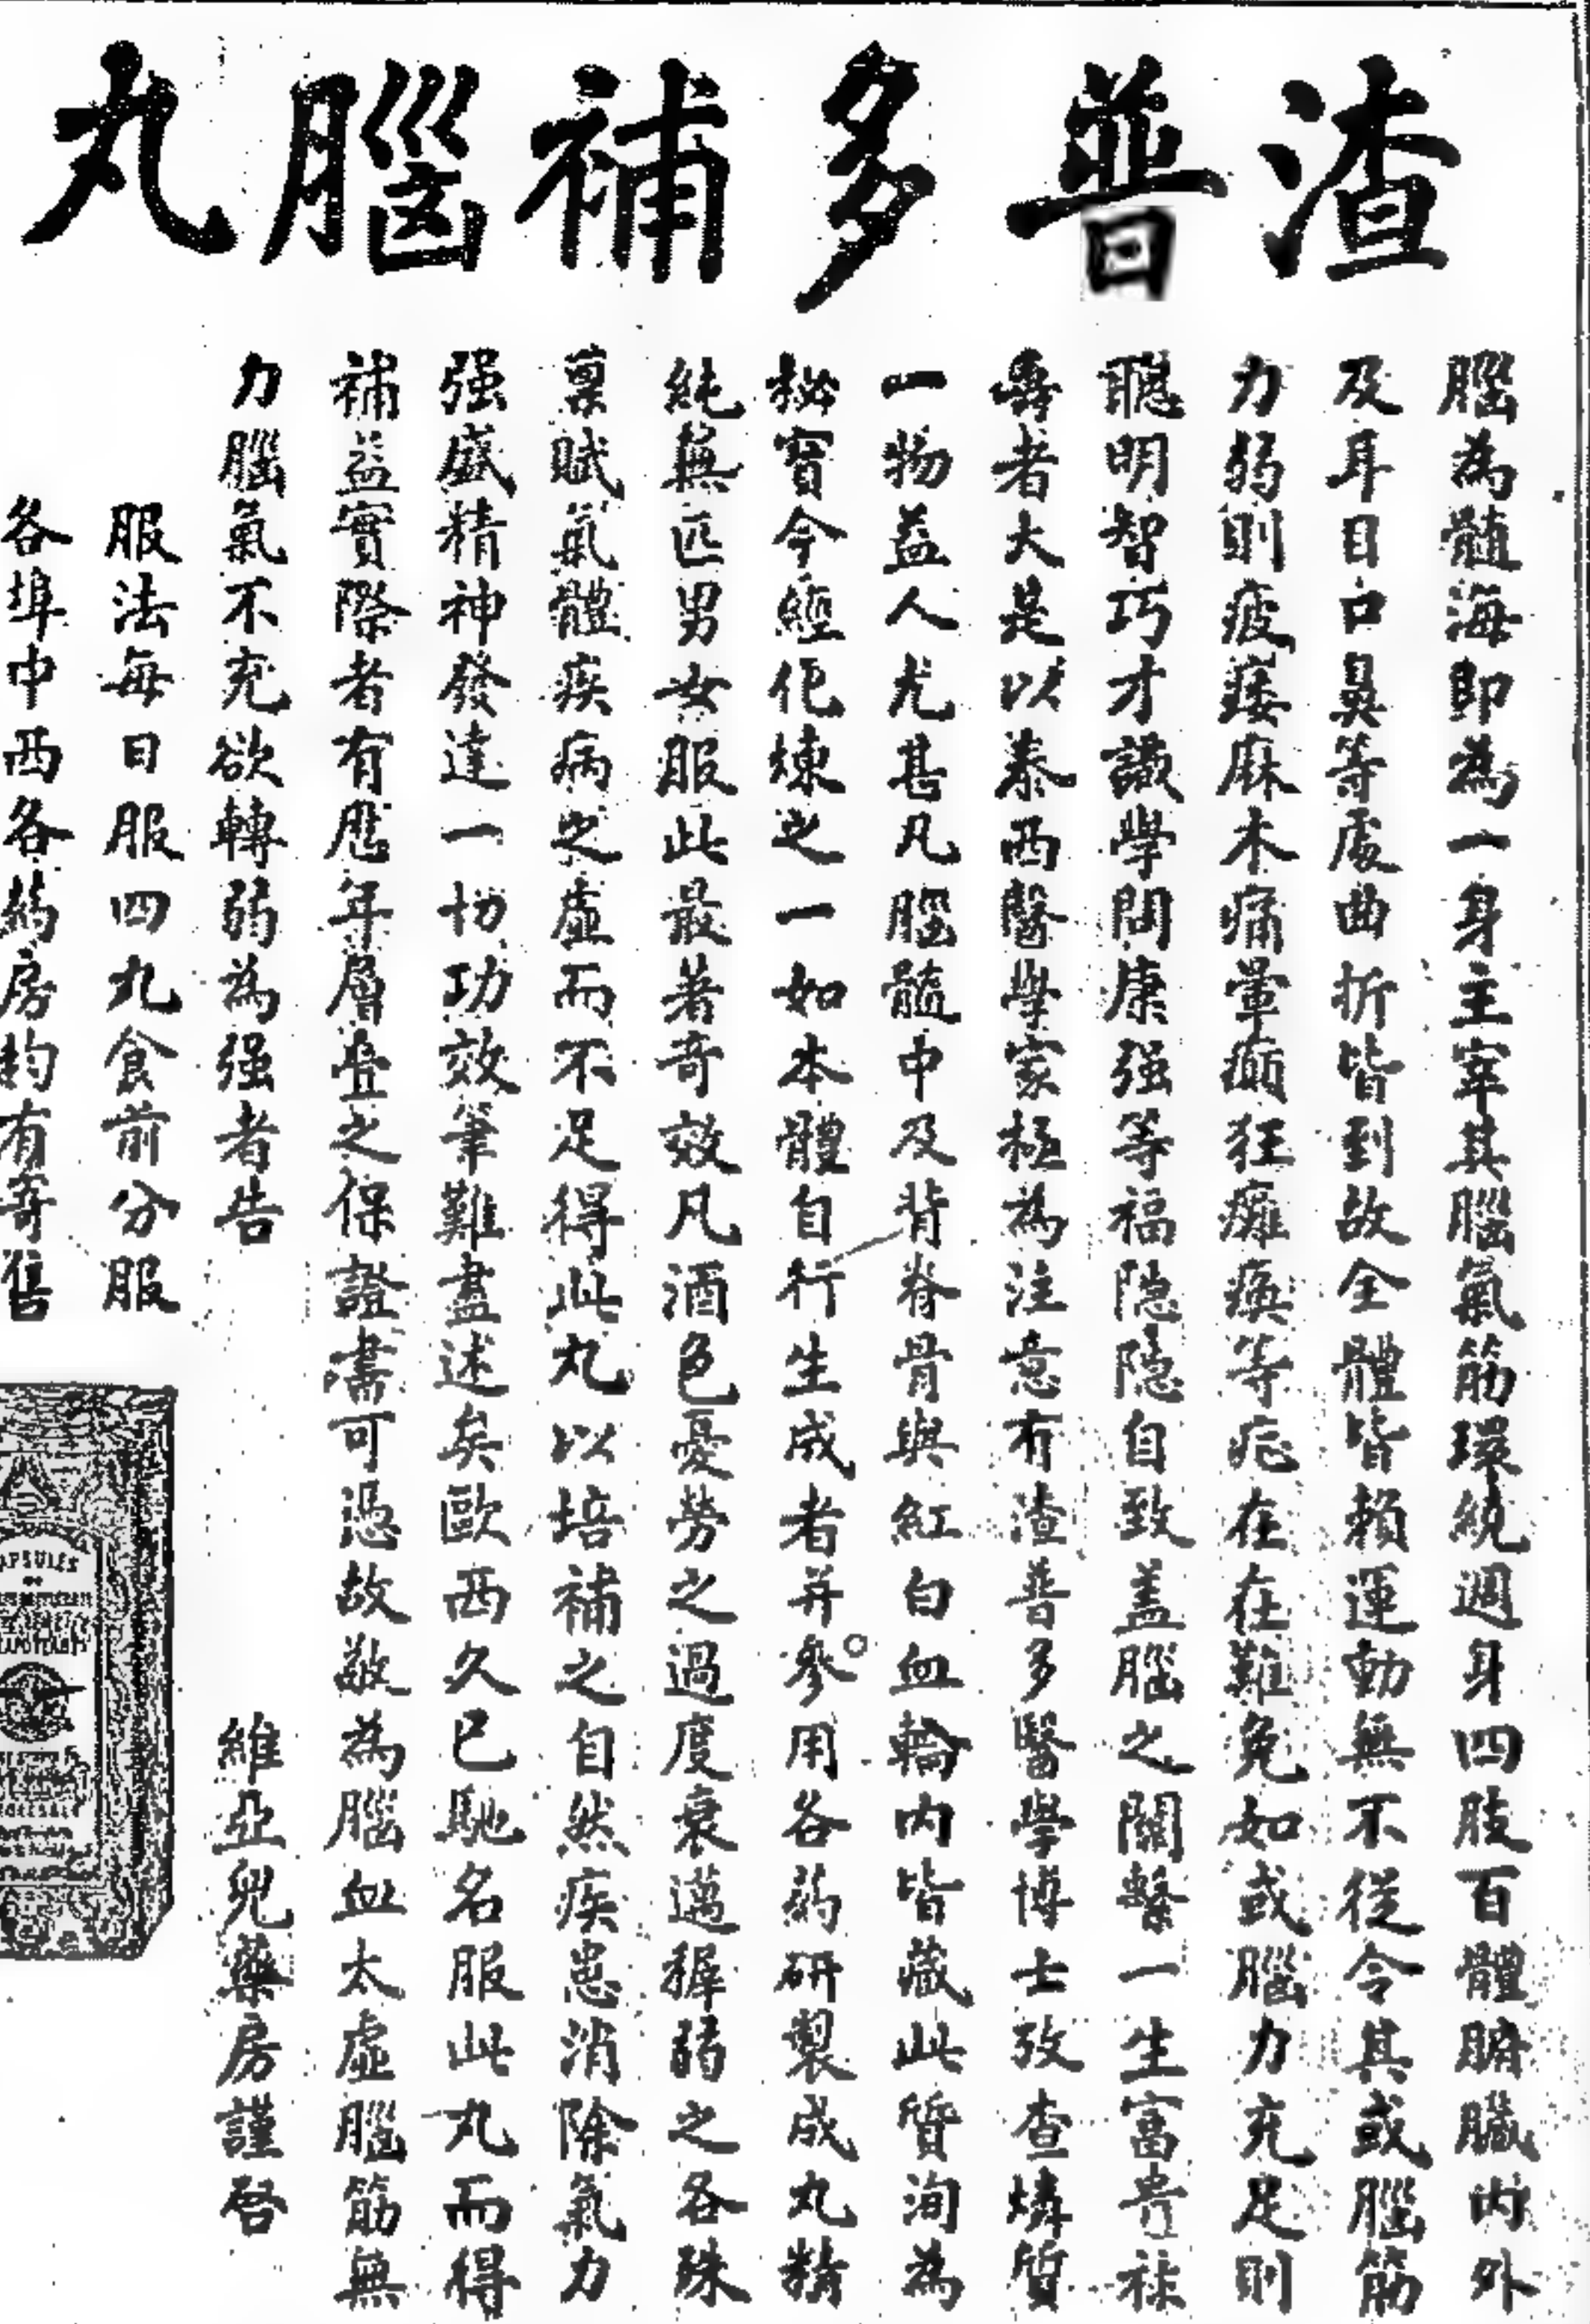 渣普多補腦丸
腦為髓海即為一身主宰其腦氣筋環繞週身四肢百體臍臟内外
及耳目口鼻等處曲折皆到故全體皆賴運動無不從令其或腦筋
力弱則疲痿麻木痛暈癇狂癱瘓等症在在難免如或腦力充足則
聰明智巧才識學問康强等福隐隐自致盖腦之關繫一生富貴禄
壽者大是以泰西醫學家極為注意有渣普多醫學博士攷查燐質
一物益人尤甚凡腦髓中及背脊骨與紅白血輪内皆藏此質洵為
秘寶今經化煉之一如本體自行生成者并參用各药研製成丸精
純無匹男女服此最著奇效凡酒色憂勞之過度衰邁孱弱之各殊
禀賦氣體疾病之虛而不足得此丸以培補之自然疾患消除氣力
强盛精神發達一切功效筆難盡述矣歐西久已馳名服此丸而得
補益實際者有歷年層疊之保證書可憑故敬為腦血太虛腦筋無
力腦氣不充欲轉弱為强者告
維亞兒藥房謹啓
服法每日服四丸食前分服
各埠中西各药房均有寄售